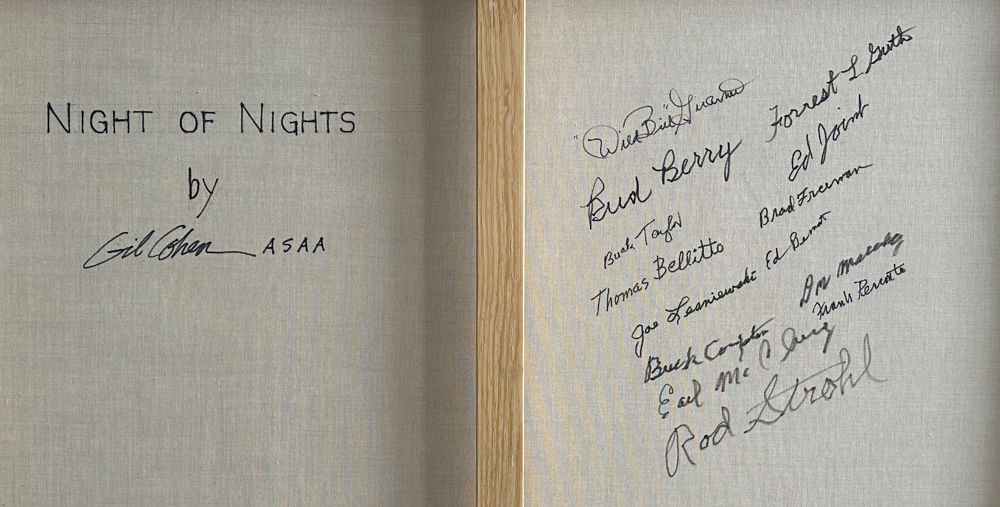 NIGHT OF NIGHTS
by
Gil Cohen ASAA
"Wild Bill" Guarnere
Forrest L Guth
Bud Berry
Ed Joint
Buck Taylor
Brad Freeman
Thomas Bellitto
Joe Lesniewski
Ed
Don Malarkey
Frank Perconte
Buck Compton
Earl McClung
Rod Strohl